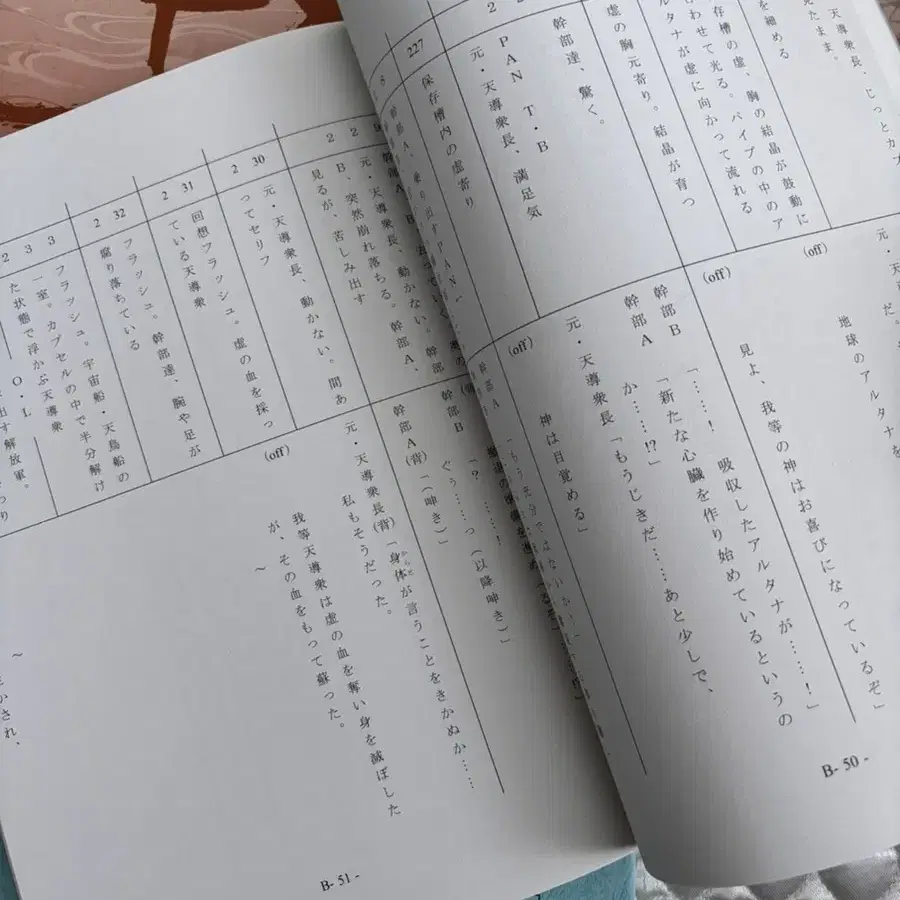 天導衆長、じっとカ
見たまま。
を細める
存槽の虚、胸の結晶が鼓動に
わせて光る。パイプの中のア
ルタナが虚に向かって流れる
虚の胸元寄り。結晶が育つ
幹部達、驚く。
PAN T・B
元・天導衆長、満足気
227
保存槽内の虚寄り
地球のアルタナを
(off)
見よ、我等の神はお喜びになっているぞ」
(off)
吸収したアルタナが……!
幹部B「……!」
幹部A「新たな心臓を作り始めているというの
か……!?」
元・天導衆長「もうじきだ……あと少しで、
(off)
神は目覚める」
B- 50 -
元・天導衆長、動かない。幹部
B、突然崩れ落ちる。幹部A、
見るが、苦しみ出す
230
元・天導衆長、動かない。間あ
ってセリフ
231
回想フラッシュ。虚の血を採っ
ている天導衆
232
フラッシュ。幹部達、腕や足が
腐り落ちている
233
フラッシュ。宇宙船・天鳥船の
一室。カプセルの中で半分解け
た状態で浮かぶ天導衆
O・L
出す解放軍。
幹部B「?……!
ぐぅ……っ(以降呻き)」
幹部A(背)「(呻き)」
元・天導衆長(背)「身体が言うことをきかぬか……
からだ
私もそうだった。
(off)
我等天導衆は虚の血を奪い身を滅ぼした
が、その血をもって蘇った。
〜
〜
かされ、
B- 51 -